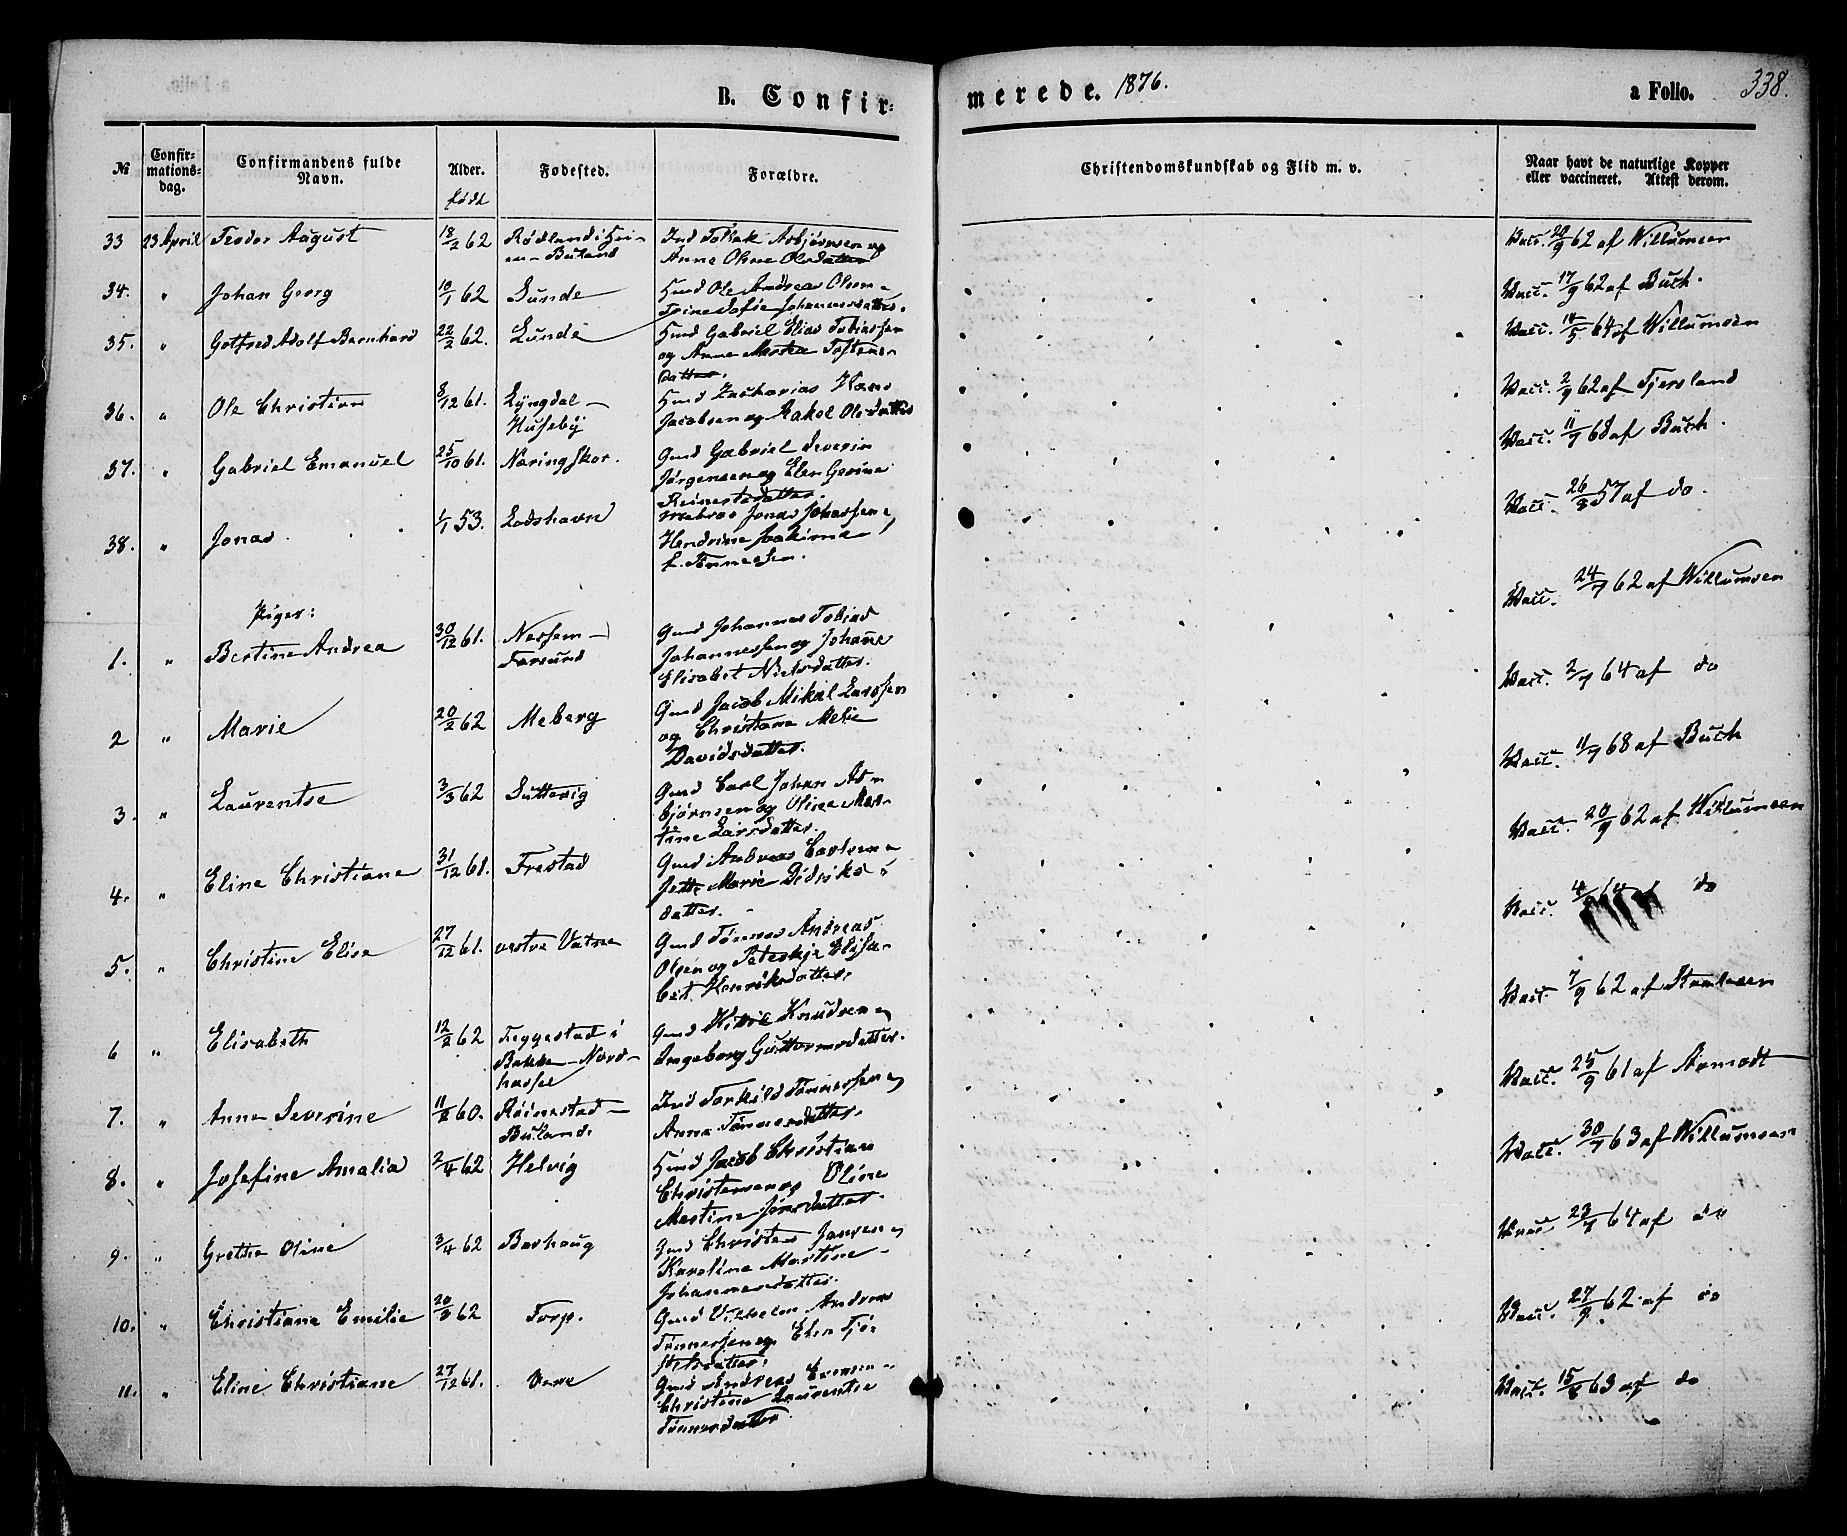 B. Confir-
merede. 1876.
a Folio. 338.
№
Confir-
mations-
dag.
Confirmandens fulde
Navn.
Alder.
født
Fødested.
Forældre.
Christendomskundskab og Flid m. v.
Naar havt de naturlige Kopper
eller vaccineret. Attest derom.
33 23 April Teodor August 18/2 62 Rødland i
Buland
Asbjørnsen og
Anne Oline Olsdatter
Vacc. 20/9 62 af Willumsen
34. " Johan Georg 10/1 62 Lunde
Gmd Ole Andreas Olsen
Trine Sofie Johannesdatter.
Vacc. 17/9 62 af Buch.
35. " Gotfred Adolf Bernhard 22/2 62. Lunde
Gmd Gabriel Elias Tobiassen
og Anne Marthea
datter.
Vacc. 14/5 64 af Willumsen
36. " Ole Christian 8/12 61. Lyngdal -
Huseby
Gmd Zacharias Hans
Jacobsen og Rakel Olsdatter
Vacc. 2/9 62 af Tjersland
37. " Gabriel Emanuel 25/10 61. Næringskor.
Gmd Gabriel Severin
Jørgensen og Elen Gurine
Reinertsdatter.
Vacc. 11/9 68 af Buch.
38. " Jonas 1/1 53. Lodshavn
Jonas Johassen
Hendrine Joakime
Tønnessen.
Vacc. 26/9 57 af do.
Piger:
1. " Bertine Andrea 30/12 61. Nessem -
Farsund
Gmd Johannes Tobias
Johannessen og Johanne
Elisabet Nielsdatter.
Vacc. 24/7 62 af Willumsen
2 " Marie 20/2 62 Meberg
Gmd Jacob Mikal Larssen
og Christiane Melie
Davidsdatter.
Vacc. 2/7 64 af do
3. " Laurentse 3/3 62 Guttevig
Gmd Carl Johan As-
bjørnsen og Oline Mar-
tine Larsdatter.
Vacc. 11/7 68 af Buch
4. " Eline Christiane 31/12 61. Frestad
Gmd Andreas Carlsen
Jette Marie Didriks-
datter.
Vacc. 20/9 62 af Willumsen
5. " Christine Elise 27/12 61. vestre Vatne
Gmd Tønnes Andreas
Olsen og Peterikje Elisa-
bet Henriksdatter.
Vacc. 4/9 64 af do
6 " Elisabeth 12/2 62 Feggestad i
Bakke - Nord-
hassel
Gmd Kittil Knudsen
Ingeborg Guttormsdatter.
Vacc. 7/9 62 af
7. " Anne Severine 11/8 60. Røinestad -
Buland.
Torkild Tønnessen
Anna Tønnesdatter.
Vacc. 25/9 61 af Aamodt
8. " Josefine Amalia 2/4 62 Helvig
Gmd Jacob Christian
Christensen og Oline
Mertine
Vacc. 30/7 63 af Willumsen
9. " Grethe Oline 3/4 62 Barhaug
Gmd Christen Jansen
Karoline Martine
Johannesdatter.
Vacc. 23/7 64 af do
10. " Christiane Emilie 20/3 62 Torp.
Gmd Vilhelm Andreas
Tønnessen og Elen
Vacc. 27/9 62. af do
11. " Eline Christiane 27/12 61. Vere
Gmd Andreas Evensen
Christine Laurentie
Tønnesdatter
Vacc. 15/8 63 af do